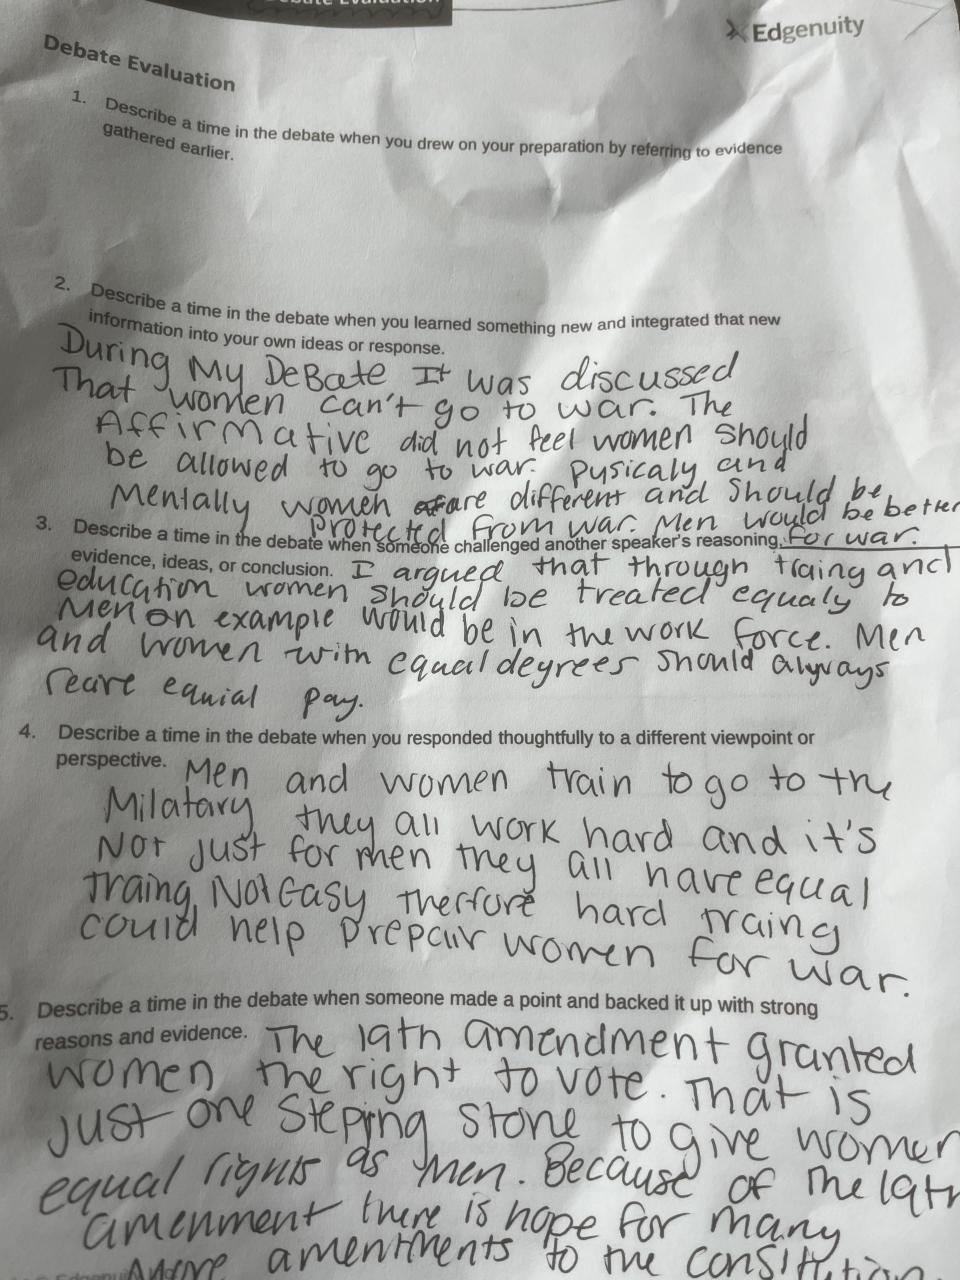 Debate Evaluation
Edgenuity
Debate Evaluation
1. Describe a time in the debate when you drew on your preparation by referring to evidence
gathered earlier.
2. Describe a time in the debate when you learned something new and integrated that new
information into your own ideas or response.
During My DeBate It was discussed
That women can't go to war. The
Affirmative did not feel women should
be allowed to go to war. pysicaly and
Mentally women are different and should be
protected from war. Men would be better
for war.
3. Describe a time in the debate when someone challenged another speaker's reasoning,
evidence, ideas, or conclusion. I argued that through traing and
education women should be treated equaly to
Men on example would be in the work force. Men
and women with equal degrees should always
recire equial pay.
4. Describe a time in the debate when you responded thoughtfully to a different viewpoint or
perspective. Men and women train to go to the
Milatary they all work hard and it's
Not just for men they all have equal
Traing, Not Easy Therfore hard traing
could help prepair women for war.
5. Describe a time in the debate when someone made a point and backed it up with strong
reasons and evidence. The 19th amendment granted
women the right to vote. That is
just one steping stone to give women
equal rights as men. Because of the 19th
amenment there is hope for many
More amentments to the